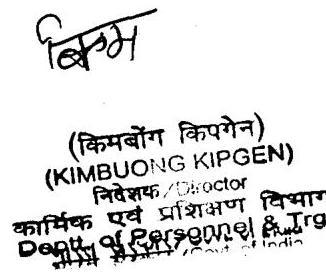 किम
(किमबोंग किपगेन)
(KIMBUONG KIPGEN)
निदेशक/Director
कार्मिक एवं प्रशिक्षण विभाग
Deptt. of Personnel & Trg
भारत सरकार/Govt. of India